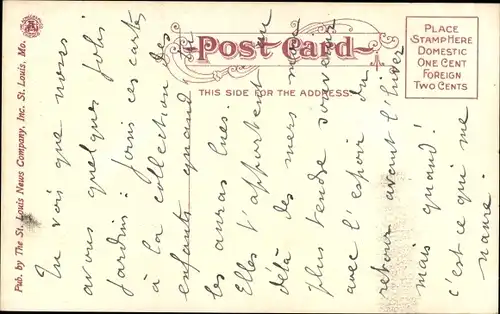 Post Card
THIS SIDE FOR THE ADDRESS
PLACE
STAMP HERE
DOMESTIC
ONE CENT
FOREIGN
TWO CENTS
Pub. by The St. Louis News Company, Inc. St. Louis, Mo.
Tu vois que nous
avons quelques jolis
jardins : joins ces cartes
à la collection des
enfants quand tu
les auras lues.
Elles t'apportent
delà des mers mon
plus tendre souvenir
avec l'espoir du
retour avant l'hiver
mais quand!
c'est ce qui me
navre.